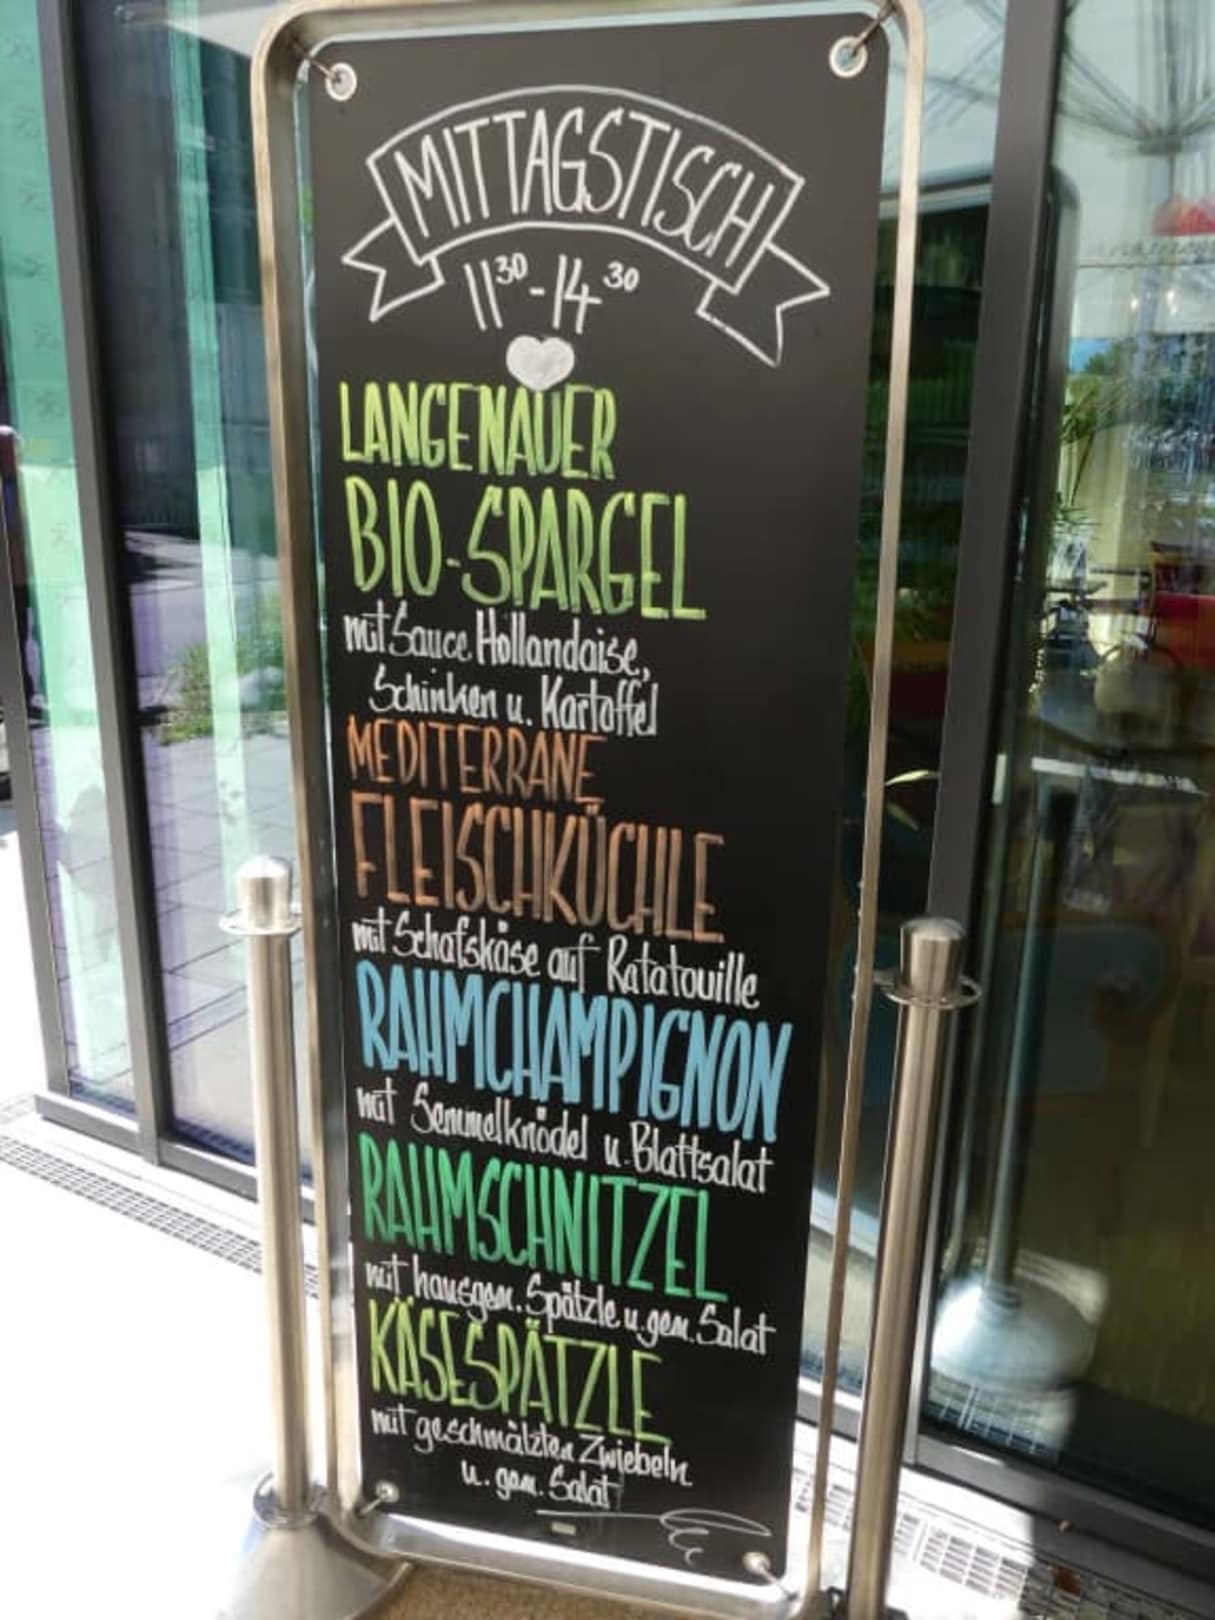 MITTAGSTISCH
11³⁰ - 14³⁰
LANGENAUER
BIO-SPARGEL
mit Sauce Hollandaise,
Schinken u. Kartoffel
MEDITERRANE
FLEISCHKÜCHLE
mit Schafskäse auf Ratatouille
RAHMCHAMPIGNON
mit Semmelknödel u. Blattsalat
RAHMSCHNITZEL
mit hausgem. Spätzle u. gem. Salat
KÄSESPÄTZLE
mit geschmälzten Zwiebeln
u. gem. Salat